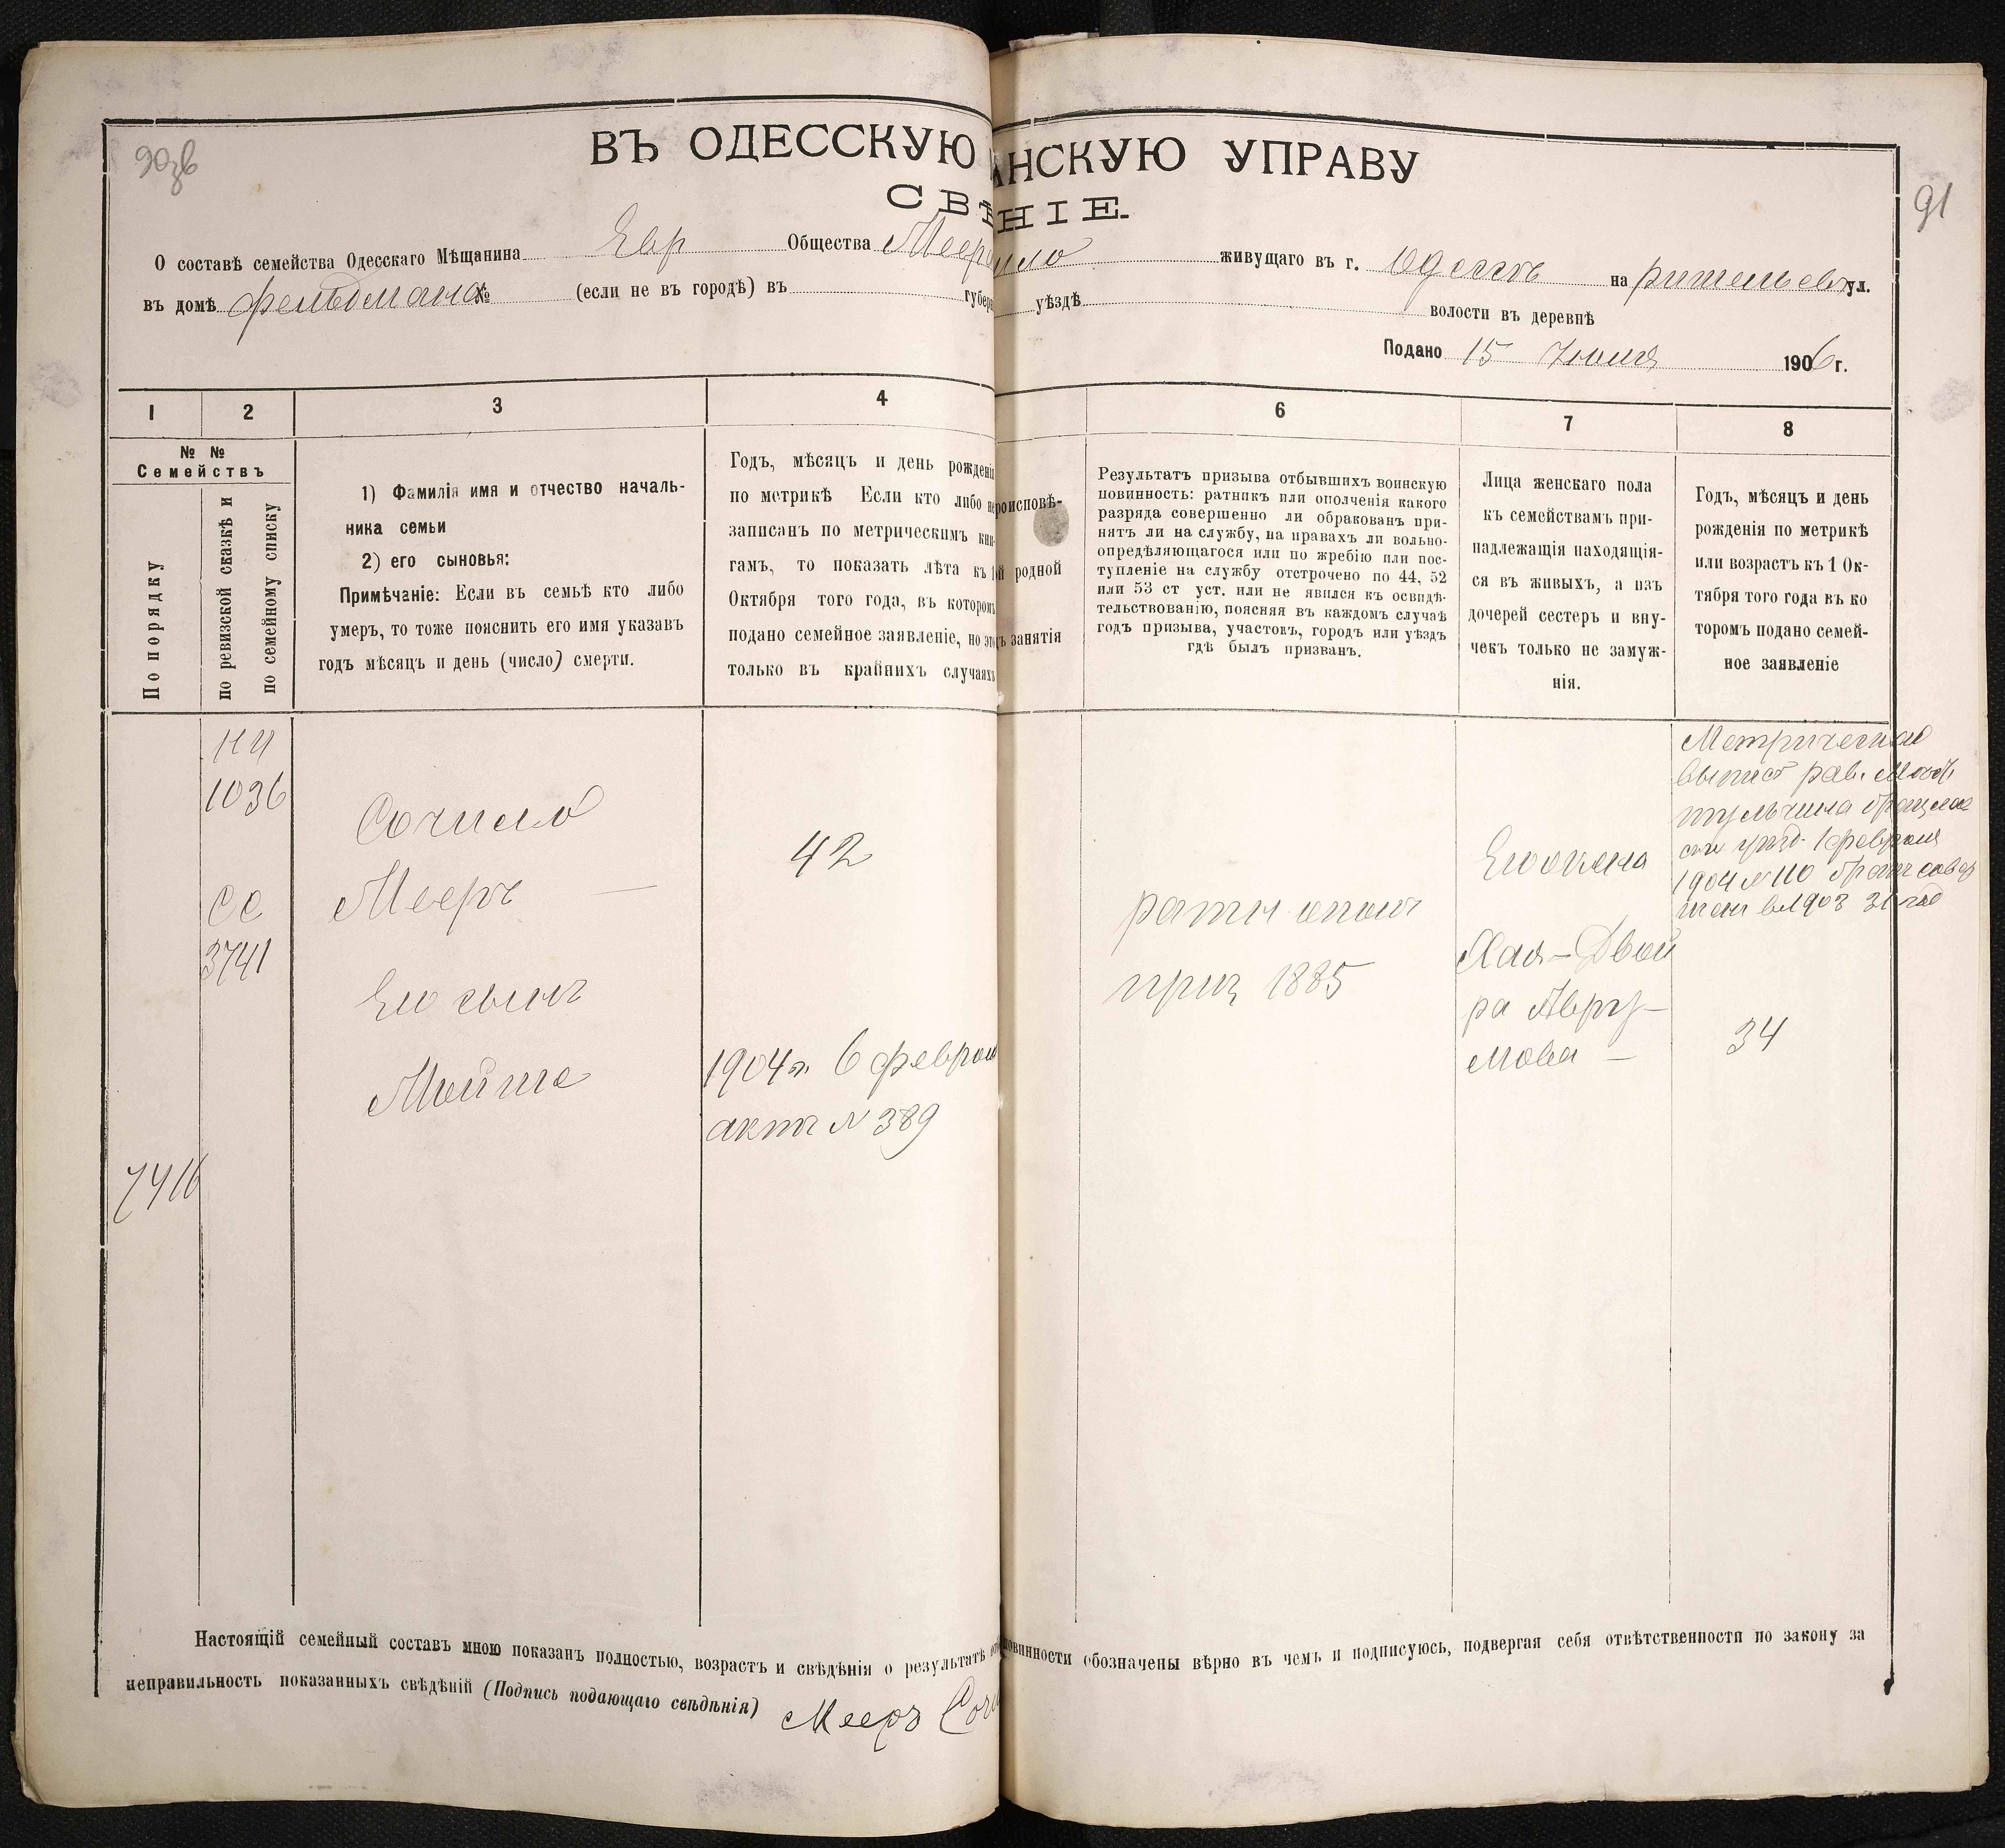 90зв
91
ВЪ ОДЕССКУЮ АНСКУЮ УПРАВУ
СВѢ НІЕ.
О составѣ семейства Одесскаго Мѣщанина Евр Общества Меера живущаго въ г. Одессѣ на ришельевск ул.
въ домѣ Фельдмана № (если не въ городѣ) въ губерн уѣздѣ волости въ деревнѣ
Подано 15 Іюля 1906 г.
1 2 3 4 6 7 8
№ №
Семействъ
По порядку
по ревизской сказкѣ и
по семейному списку
1) Фамилія имя и отчество началь-
ника семьи
2) его сыновья:
Примѣчаніе: Если въ семьѣ кто либо
умеръ, то тоже пояснить его имя указавъ
годъ мѣсяцъ и день (число) смерти.
Годъ, мѣсяцъ и день рожденія
по метрикѣ Если кто либо не
записанъ по метрическимъ кни-
гамъ, то показать лѣта къ 1
Октября того года, въ которомъ
подано семейное заявленіе, но это
только въ крайнихъ случаяхъ
роисповѣ-
й родной
ъ занятія
Результатъ призыва отбывшихъ воинскую
повинность: ратникъ или ополченія какого
разряда совершенно ли обракованъ при-
нятъ ли на службу, на правахъ ли вольно-
опредѣляющагося или по жребію или пос-
тупленіе на службу отстрочено по 44, 52
или 53 ст уст. или не явился къ освидѣ-
тельствованію, поясняя въ каждомъ случаѣ
годъ призыва, участокъ, городъ или уѣздъ
гдѣ былъ призванъ.
Лица женскаго пола
къ семействамъ при-
надлежащія находящія-
ся въ живыхъ, а изъ
дочерей сестеръ и вну-
чекъ только не замуж-
нія.
Годъ, мѣсяцъ и день
рожденія по метрикѣ
или возрастъ къ 1 Ок-
тября того года въ ко
торомъ подано семей-
ное заявленіе
1036
Сс
3741
7416
Сочило
Мееръ —
Его сынъ
Мойше
42
1904 г. 6 феврал
актъ № 389
ратн ополч
приз 1885
Его жена
Хая-Двой
ра Авру-
мова —
Метрическая
выпис рав.
тульчина брацлав
ск уѣзд. 1 февраля
1904 № 110 бракъ совер
шен в 1903 31
34
Настоящій семейный составъ мною показанъ полностью, возрастъ и свѣдѣнія о результатѣ от повинности обозначены вѣрно въ чемъ и подписуюсь, подвергая себя отвѣтственности по закону за
неправильность показанныхъ свѣдѣній (Подпись подающаго свѣдѣнія) Мееръ Сочи